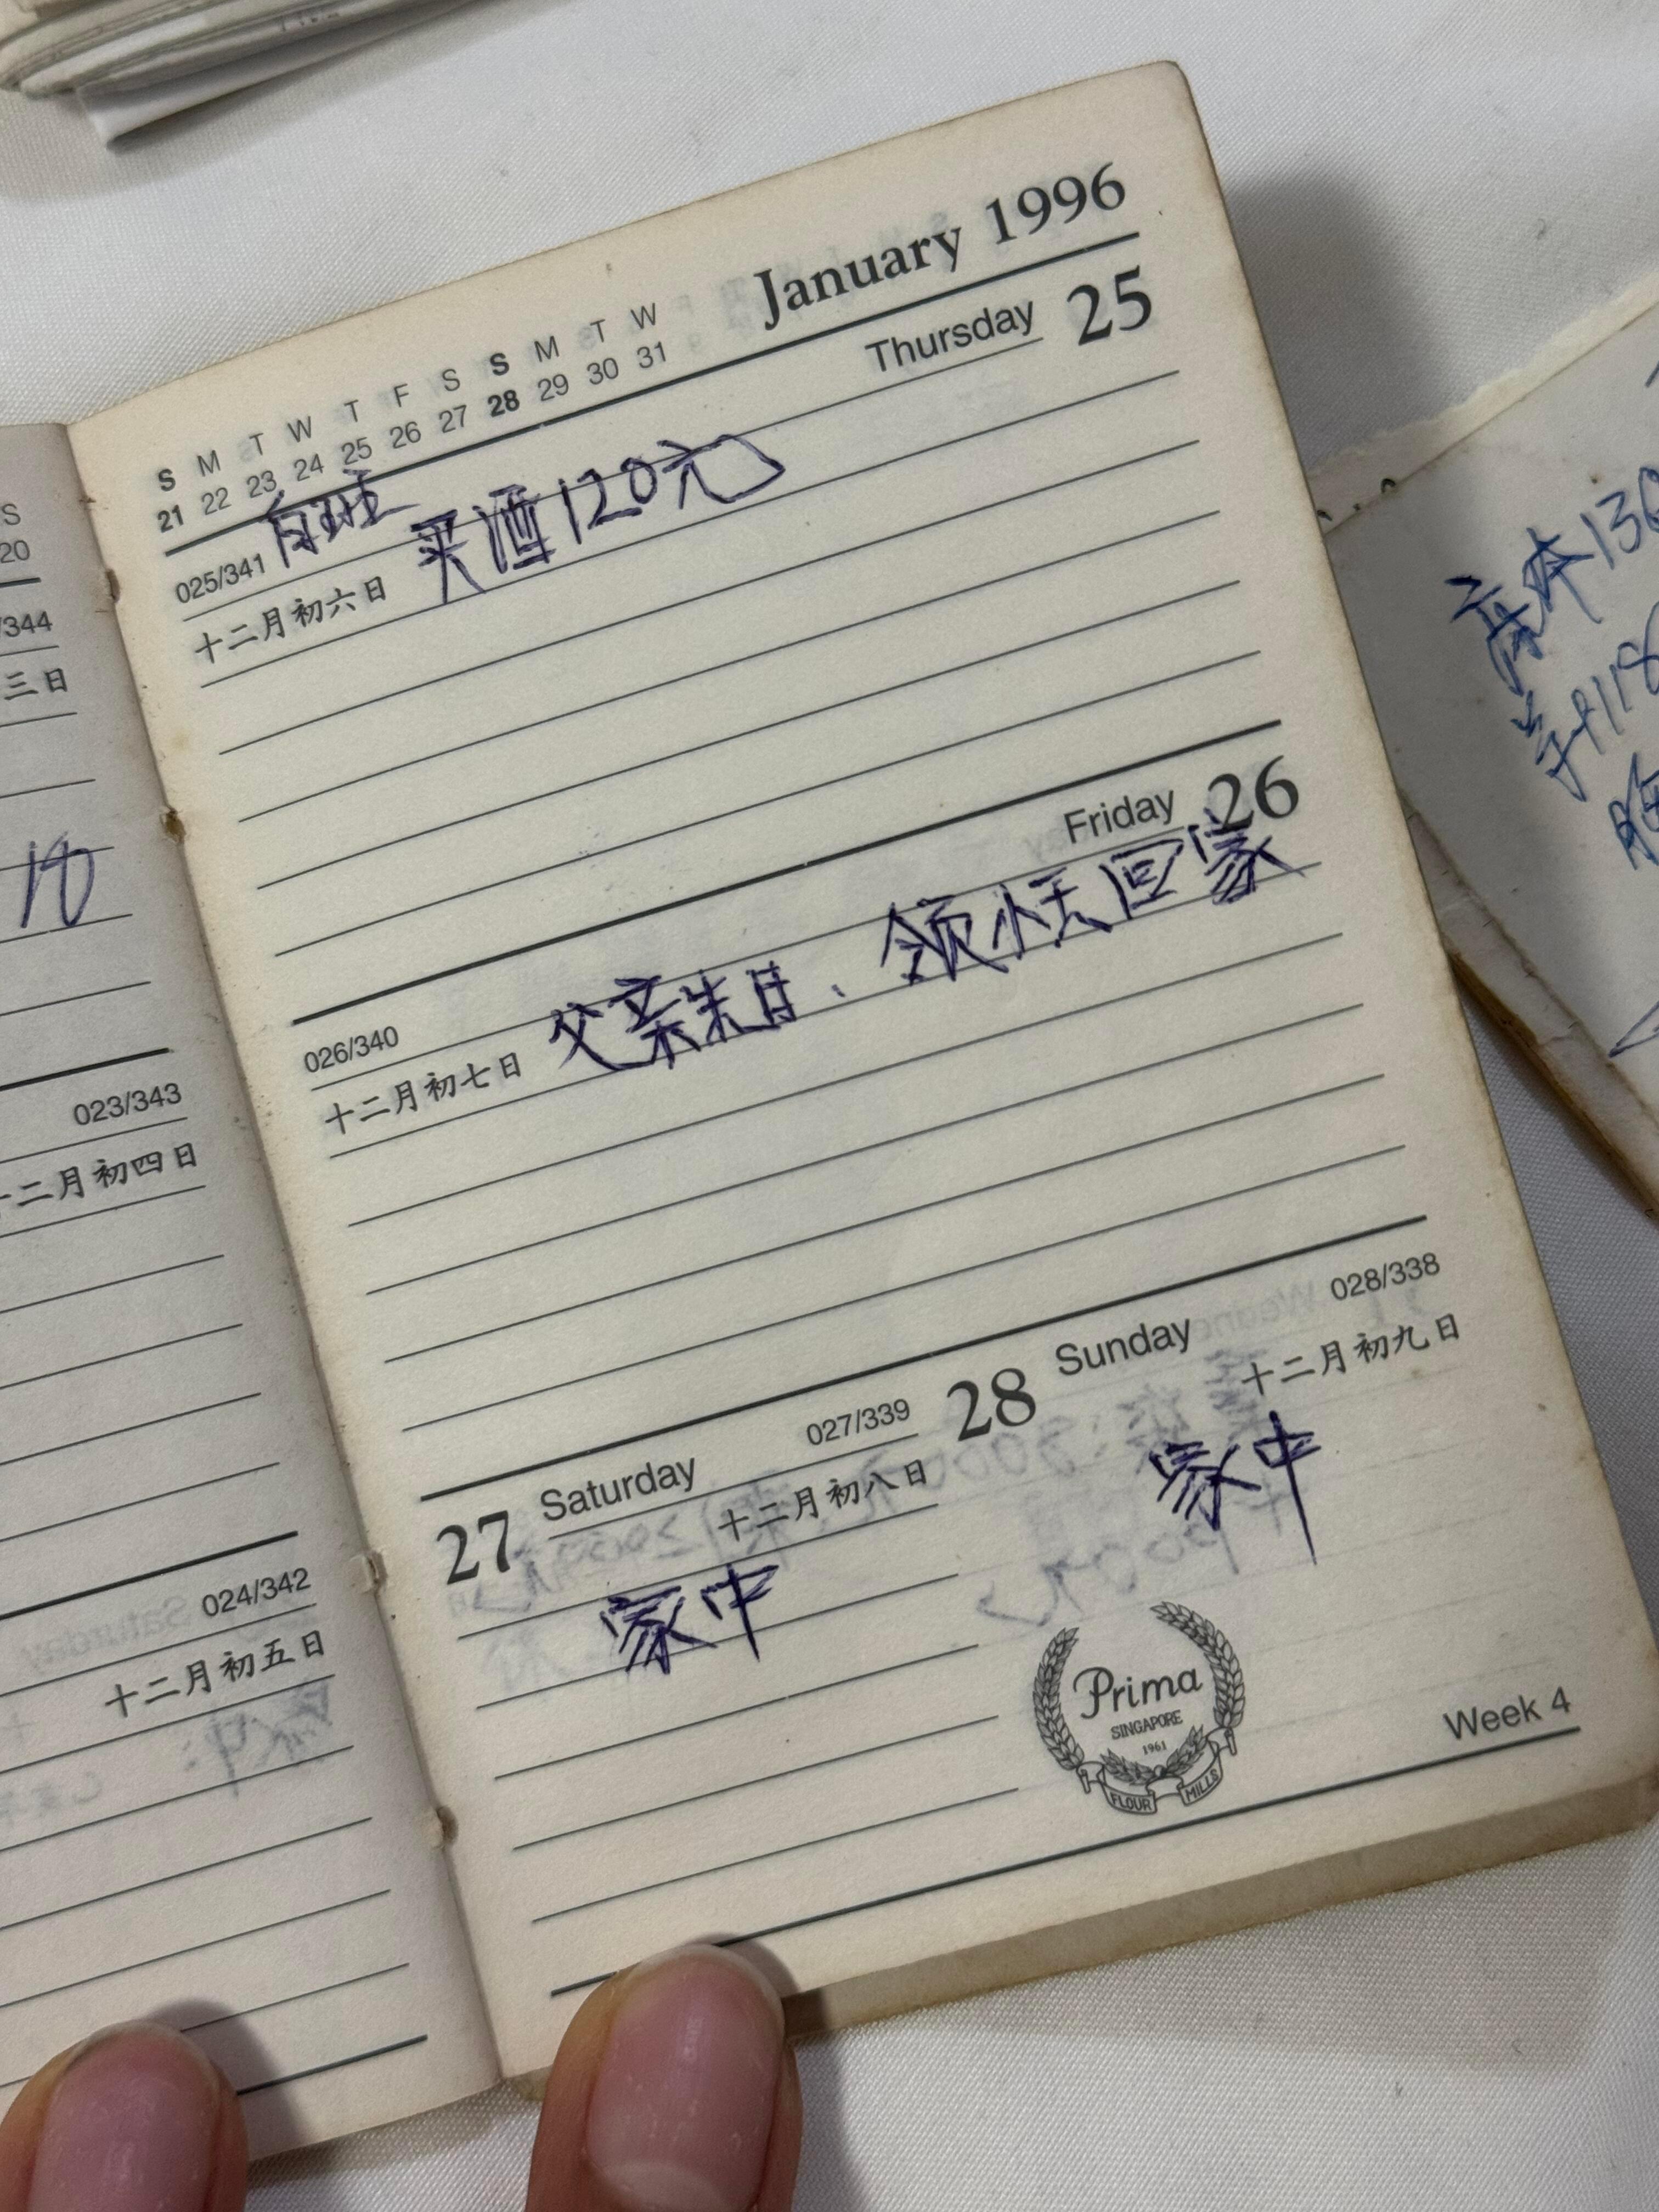 S
20
/344
三日
10
023/343
十二月初四日
024/342
十二月初五日
January 1996
S M T W T F S S M T W
21 22 23 24 25 26 27 28 29 30 31
Thursday 25
025/341 白班
十二月初六日 买酒120元
Friday 26
026/340
十二月初七日 父亲生日、领恬回家
27 Saturday 027/339
十二月初八日
家中
28 Sunday 028/338
十二月初九日
家中
Prima
SINGAPORE
1961
FLOUR MILLS
Week 4